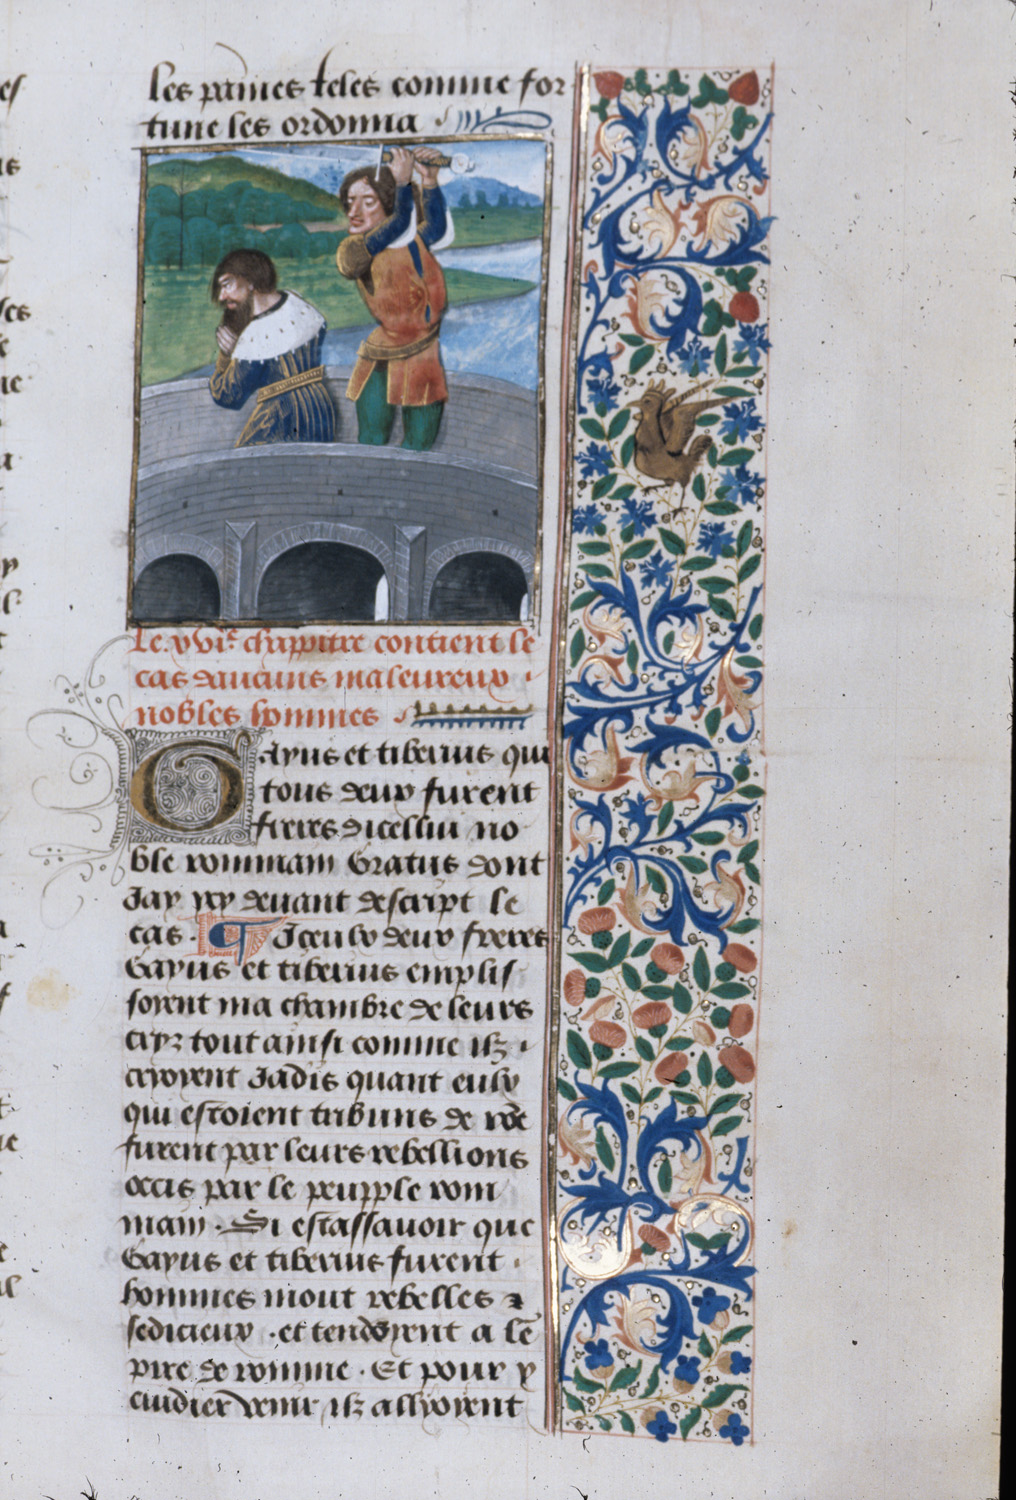 les paines teles comme for
tune les ordonna
Le xvi.e chapitre contient le
cas daucuns maleureux
nobles hommes
Gayus et tiberius qui
tous deux furent
freres dicellui no
ble rommain Gratus dont
Jay ja deuant descript le
cas. Jceulx deux freres
Gayus et tiberius emplis
soient ma chambre de leurs
criz tout ainsi comme ilz
crioyent Jadis quant eulx
qui estoient tribuns de rōe
furent par leurs rebellions
occis par le peupple rom
main. Si est assauoir que
Gayus et tiberius furent
hommes mout rebelles et
sedicieux. et tendoyent a lē
pire de romme. Et pour y
cuidier venir ilz allioyent